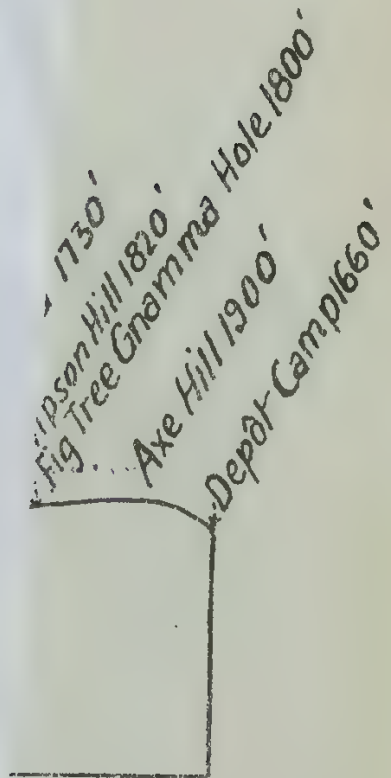 1730'
Hill 1820'
Fig Tree Gnamma Hole 1800'
Axe Hill 1900'
Depôt Camp 1660'